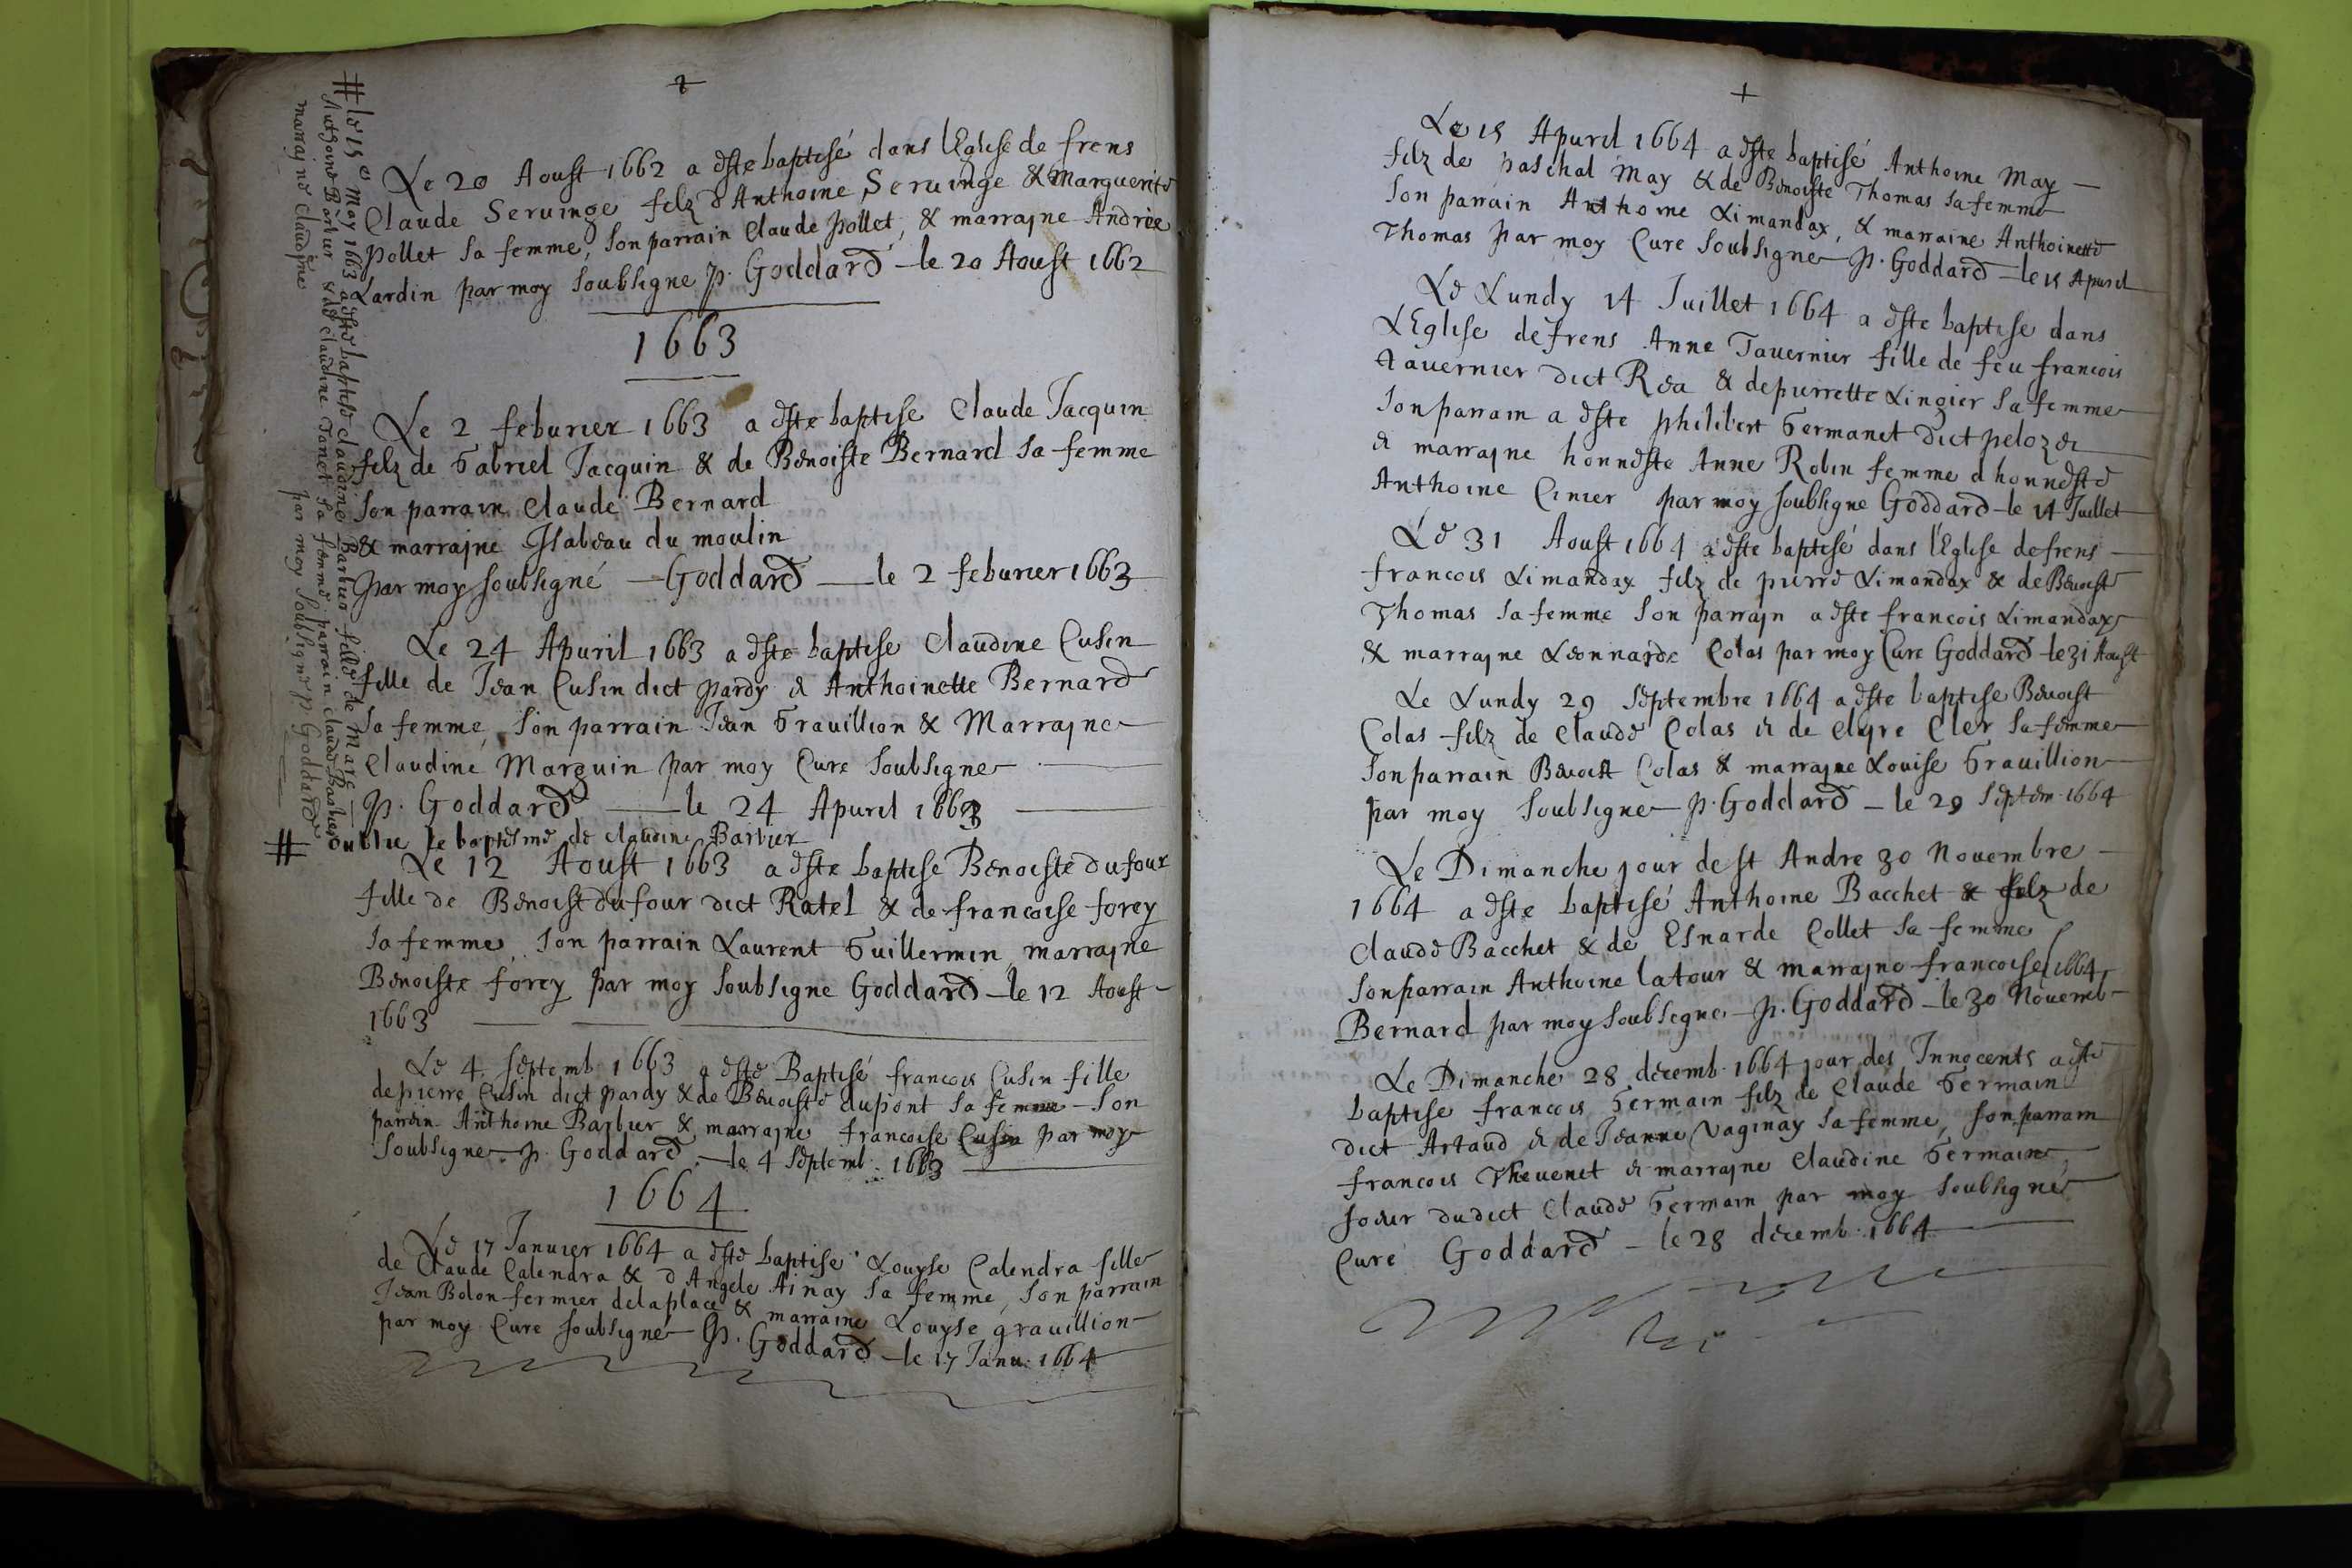 Le 20 Aoust 1662 a este baptisé dans l'Eglise de frens
Claude Seruinge filz d'Anthoine Seruinge & Marguerite
Pollet sa femme, son parrain Claude Pollet, & marrajne Andrée
Lardin par moy soubsigne p. Goddard — le 20 Aoust 1662
1663
Le 2 feburier 1663 a este baptise Claude Jacquin
filz de Gabriel Jacquin & de Benoiste Bernard sa femme
son parrain Claude Bernard
& marrajne Isabeau du moulin
par moy soubsigné — Goddard — le 2 feburier 1663
Le 24 Apuril 1663 a este baptise Claudine Cusin
fille de Jean Cusin dict pardy & Anthoinette Bernard
sa femme, son parrain Jean Grauillion & Marrajne
Claudine Marguin par moy Cure soubsigne
p. Goddard — le 24 Apuril 1663
# oublie le baptesme de claudine Barbier
Le 12 Aoust 1663 a este baptise Benoiste dufour
fille de Benoist dufour dict Ratel & de francoise forey
sa femme, son parrain Laurent Guillermin, marrajne
Benoiste forey par moy soubsigne Goddard — le 12 Aoust
1663
Le 4 septemb. 1663 a este Baptisé francois Cusin fille
de pierre Cusin dict pardy & de Benoiste dupont sa femme — son
parrin Anthoine Barbier & marrajne francoise Cusin par moy
soubsigne p. Goddard. — le 4 septemb. 1663
1664
Le 17 Januier 1664 a este baptise Louyse Calendra fille
de Claude Calendra & d'Angele Ainay sa femme, son parrain
Jean Bolon fermier delaplace & marraine Louyse grauillion
par moy Cure soubsigné p. Goddard — le 17 Janu. 1664
# le 15e May 1663 a este baptise claudine Barbier fille de Marc
Anthoine Barbier & de claudine Janet sa femme parrain claude Barbier
marrajne claudine par moy soubsigne p. Goddard
Le 15 Apuril 1664 a este baptisé Anthoine May —
filz de paschal May & de Benoiste Thomas sa femme
son parrain Anthoine Limandax, & marraine Anthoinette
Thomas par moy Cure soubsigne p. Goddard — le 15 Apuril
Le Lundy 14 Juillet 1664 a este baptise dans
L'Eglise de frens Anne Tauernier fille de feu francois
tauernier dict Rea & de pierrette Lingier sa femme
son parrain a este philibert Germanet dict peloze
& marrajne honneste Anne Robin femme d'honneste
Anthoine Cinier par moy soubsigne Goddard — le 14 Juillet
Le 31 Aoust 1664 a este baptisé dans l'Eglise de frens —
francois Limandax filz de pierre Limandax & de Benoiste
Thomas sa femme son parrajn a este francois Limandax
& marrajne Leonnarde Colas par moy Cure Goddard — le 31 Aoust
Le Lundy 29 Septembre 1664 a este baptise Benoist
Colas filz de Claude Colas & de Clyre Cler sa femme
son parrain Benoist Colas & marrajne Louise Grauillion
par moy soubsigne p. Goddard — le 29 septem. 1664
Le Dimanche jour de st Andre 30 Nouembre —
1664 a este baptisé Anthoine Bacchet & filz de
Claude Bacchet & de Esnarde Collet sa femme
son parrain Anthoine latour & marrajne francoise
Bernard par moy soubsigne p. Goddard — le 30 Nouemb 1664
Le Dimanche 28 decemb. 1664 jour des Innocents a este
baptise francois Germain filz de Claude Germain
dict Artaud & de Jeanne Vaginay sa femme, son parrain
francois Theuenet & marrajne Claudine Germain
soeur dudict Claude Germain par moy soubsigne
Curé Goddard — le 28 decemb. 1664